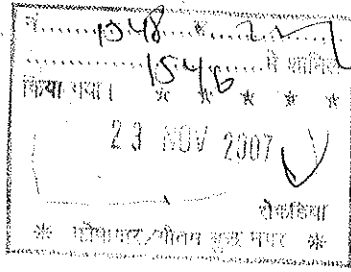 नं. 1548
1546 में शामिल
किया गया।
23 NOV 2007
रोकड़िया
कोषागार-गौतम बुद्ध नगर